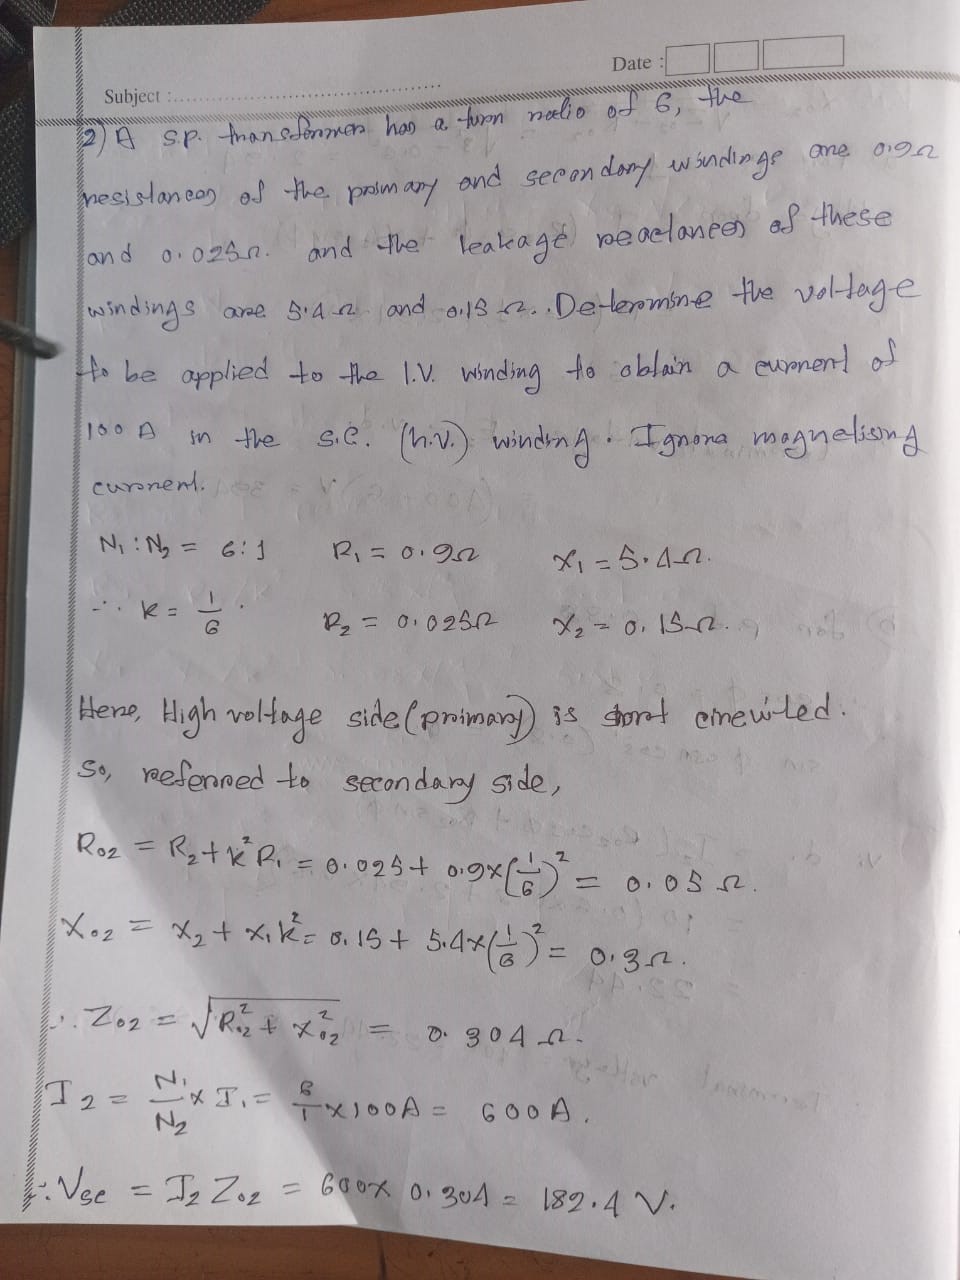 Date :
Subject :
2) A S.P. transformer has a turn ratio of 6, the
resistances of the primary and secondary windings are 0.9Ω
and 0.025Ω. and the leakage reactances of these
windings are 5.4Ω and 0.15Ω. Determine the voltage
to be applied to the l.v. winding to obtain a current of
100 A in the s.c. (h.v.) winding. Ignore magnetising
current.
N₁ : N₂ = 6:1 R₁ = 0.9Ω X₁ = 5.4Ω.
∴ K = 1/6 . R₂ = 0.025Ω X₂ = 0.15Ω.
Here, High voltage side (primary) is short circuited.
So, referred to secondary side,
R₀₂ = R₂ + K²R₁ = 0.025 + 0.9×(1/6)² = 0.05 Ω.
X₀₂ = X₂ + X₁K² = 0.15 + 5.4×(1/6)² = 0.3Ω.
∴ Z₀₂ = √(R₀₂² + X₀₂²) = 0.304 Ω.
I₂ = N₁/N₂ × I₁ = 6/1 × 100A = 600A.
∴ Vsc = I₂ Z₀₂ = 600× 0.304 = 182.4 V.